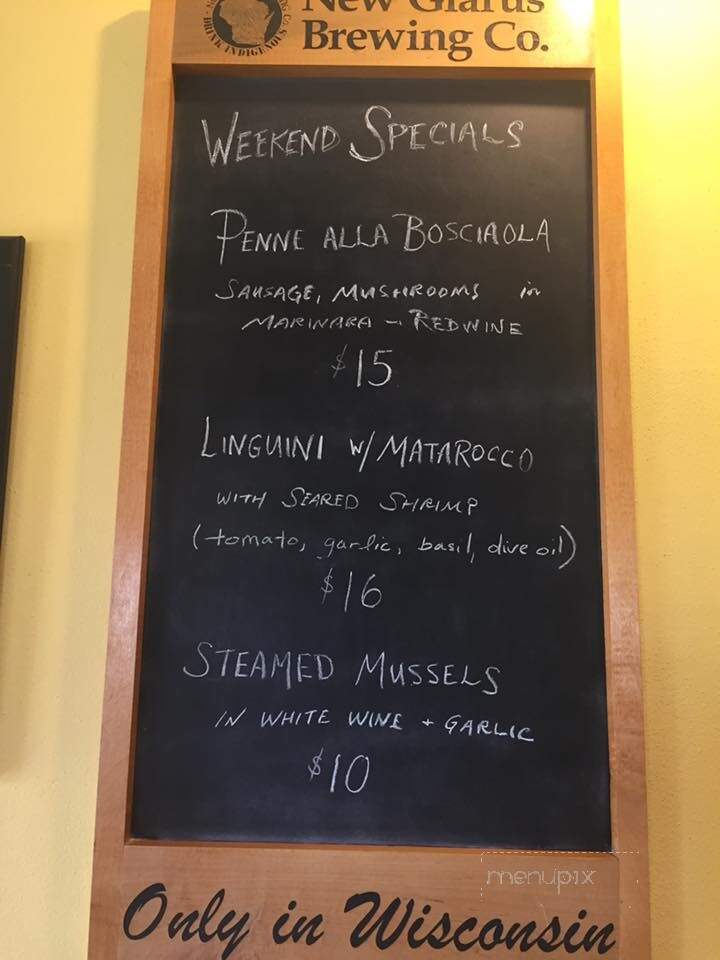 New Glarus
Brewing Co.
DRINK INDIGENOUS
WEEKEND SPECIALS
PENNE ALLA BOSCIAOLA
SAUSAGE, MUSHROOMS in
MARINARA - REDWINE
$15
LINGUINI W/ MATAROCCO
WITH SEARED SHRIMP
(tomato, garlic, basil, olive oil)
$16
STEAMED MUSSELS
IN WHITE WINE + GARLIC
$10
menupix
Only in Wisconsin